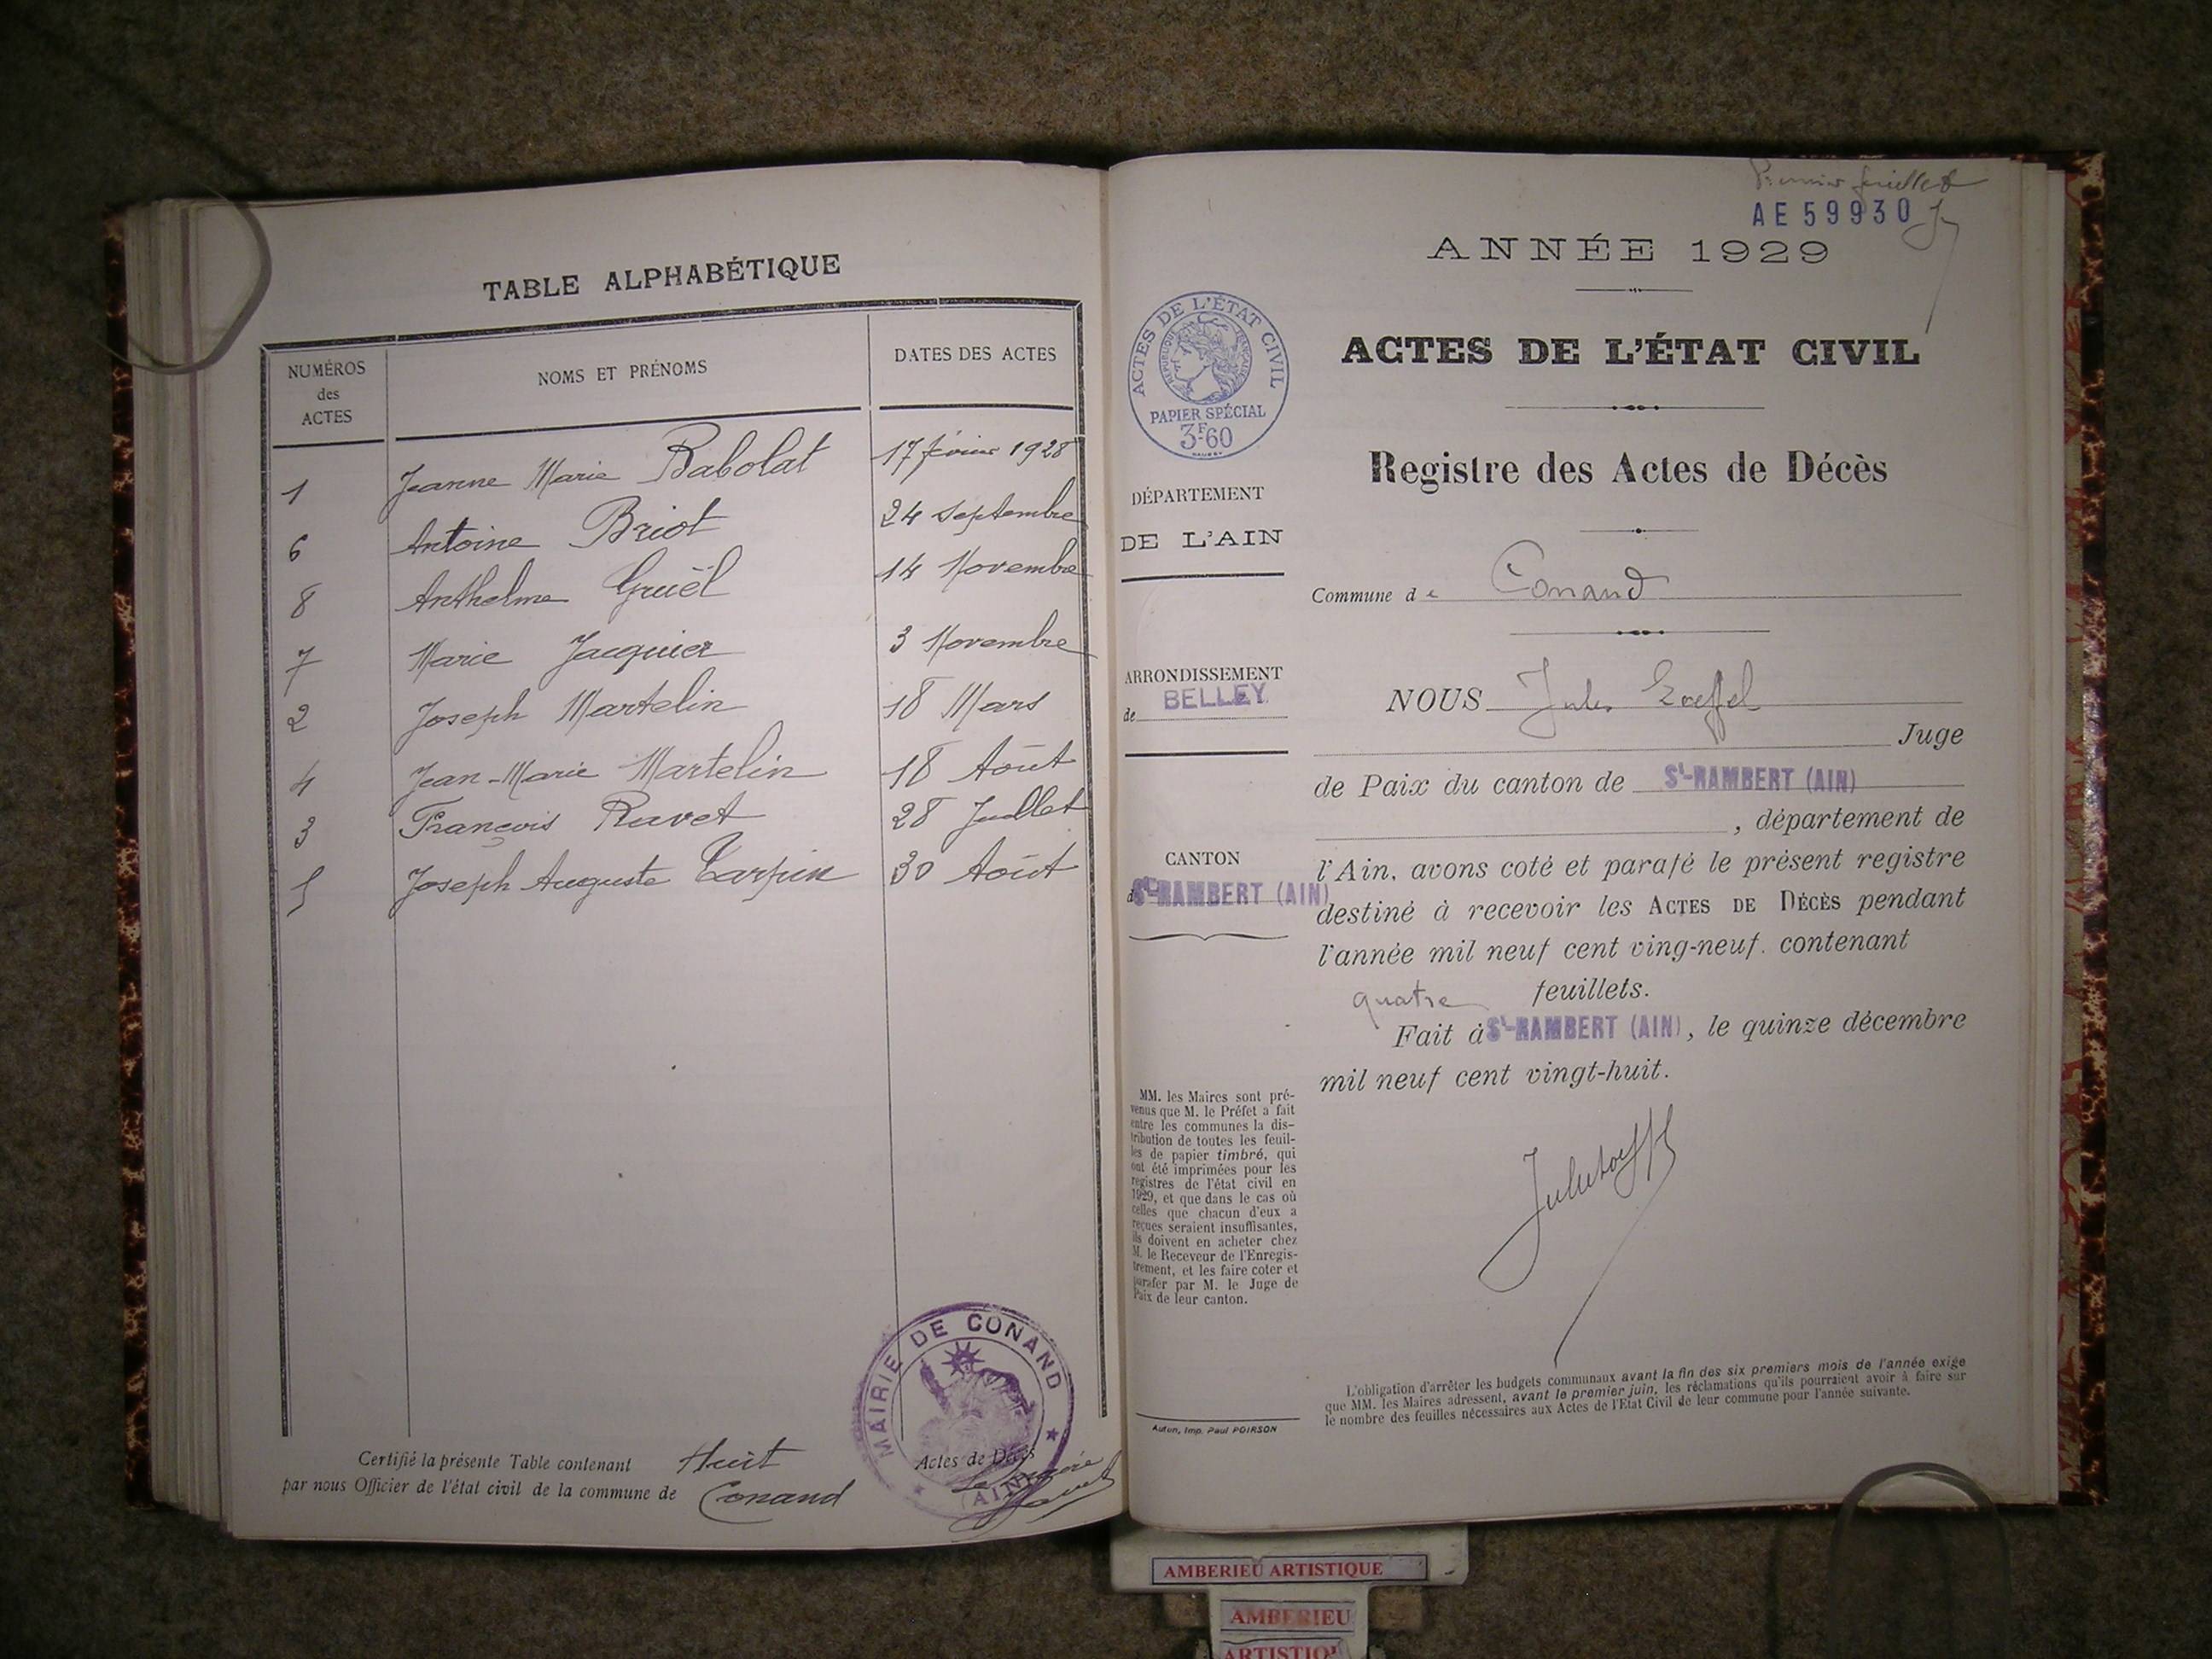 TABLE ALPHABÉTIQUE
NUMÉROS des ACTES
NOMS ET PRÉNOMS
DATES DES ACTES
1 Jeanne Marie Babolat 17 février 1928
6 Antoine Briot 24 septembre
8 Anthelme Gruël 14 Novembre
7 Marie Jacquier 3 Novembre
2 Joseph Martelin 18 Mars
4 Jean-Marie Martelin 18 Août
3 François Ravet 28 Juillet
5 Joseph Auguste Tarpin 30 Août
MAIRIE DE CONAND
(AIN)
Certifié la présente Table contenant Huit Actes de Décès
par nous Officier de l'état civil de la commune de Conand
Le maire
Premier feuillet
AE59930
ANNÉE 1929
ACTES DE L'ÉTAT CIVIL
Registre des Actes de Décès
ACTES DE L'ÉTAT CIVIL
RÉPUBLIQUE FRANÇAISE
PAPIER SPÉCIAL
3F60
DÉPARTEMENT
DE L'AIN
ARRONDISSEMENT
de BELLEY
CANTON
de St-RAMBERT (AIN)
MM. les Maires sont pré-
venus que M. le Préfet a fait
entre les communes la dis-
tribution de toutes les feuil-
les de papier timbré, qui
ont été imprimées pour les
registres de l'état civil en
1929, et que dans le cas où
celles que chacun d'eux a
reçues seraient insuffisantes,
ils doivent en acheter chez
M. le Receveur de l'Enregis-
trement, et les faire coter et
parafer par M. le Juge de
Paix de leur canton.
Autun, Imp. Paul POIRSON
Commune de Conand
NOUS Jules
Juge
de Paix du canton de St-RAMBERT (AIN)
, département de
l'Ain, avons coté et parafé le présent registre
destiné à recevoir les ACTES DE DÉCÈS pendant
l'année mil neuf cent ving-neuf. contenant
quatre feuillets.
Fait à St-RAMBERT (AIN), le quinze décembre
mil neuf cent vingt-huit.
L'obligation d'arrêter les budgets communaux avant la fin des six premiers mois de l'année exige
que MM. les Maires adressent, avant le premier juin, les réclamations qu'ils pourraient avoir à faire sur
le nombre des feuilles nécessaires aux Actes de l'État Civil de leur commune pour l'année suivante.
AMBERIEU ARTISTIQUE
AMBERIEU